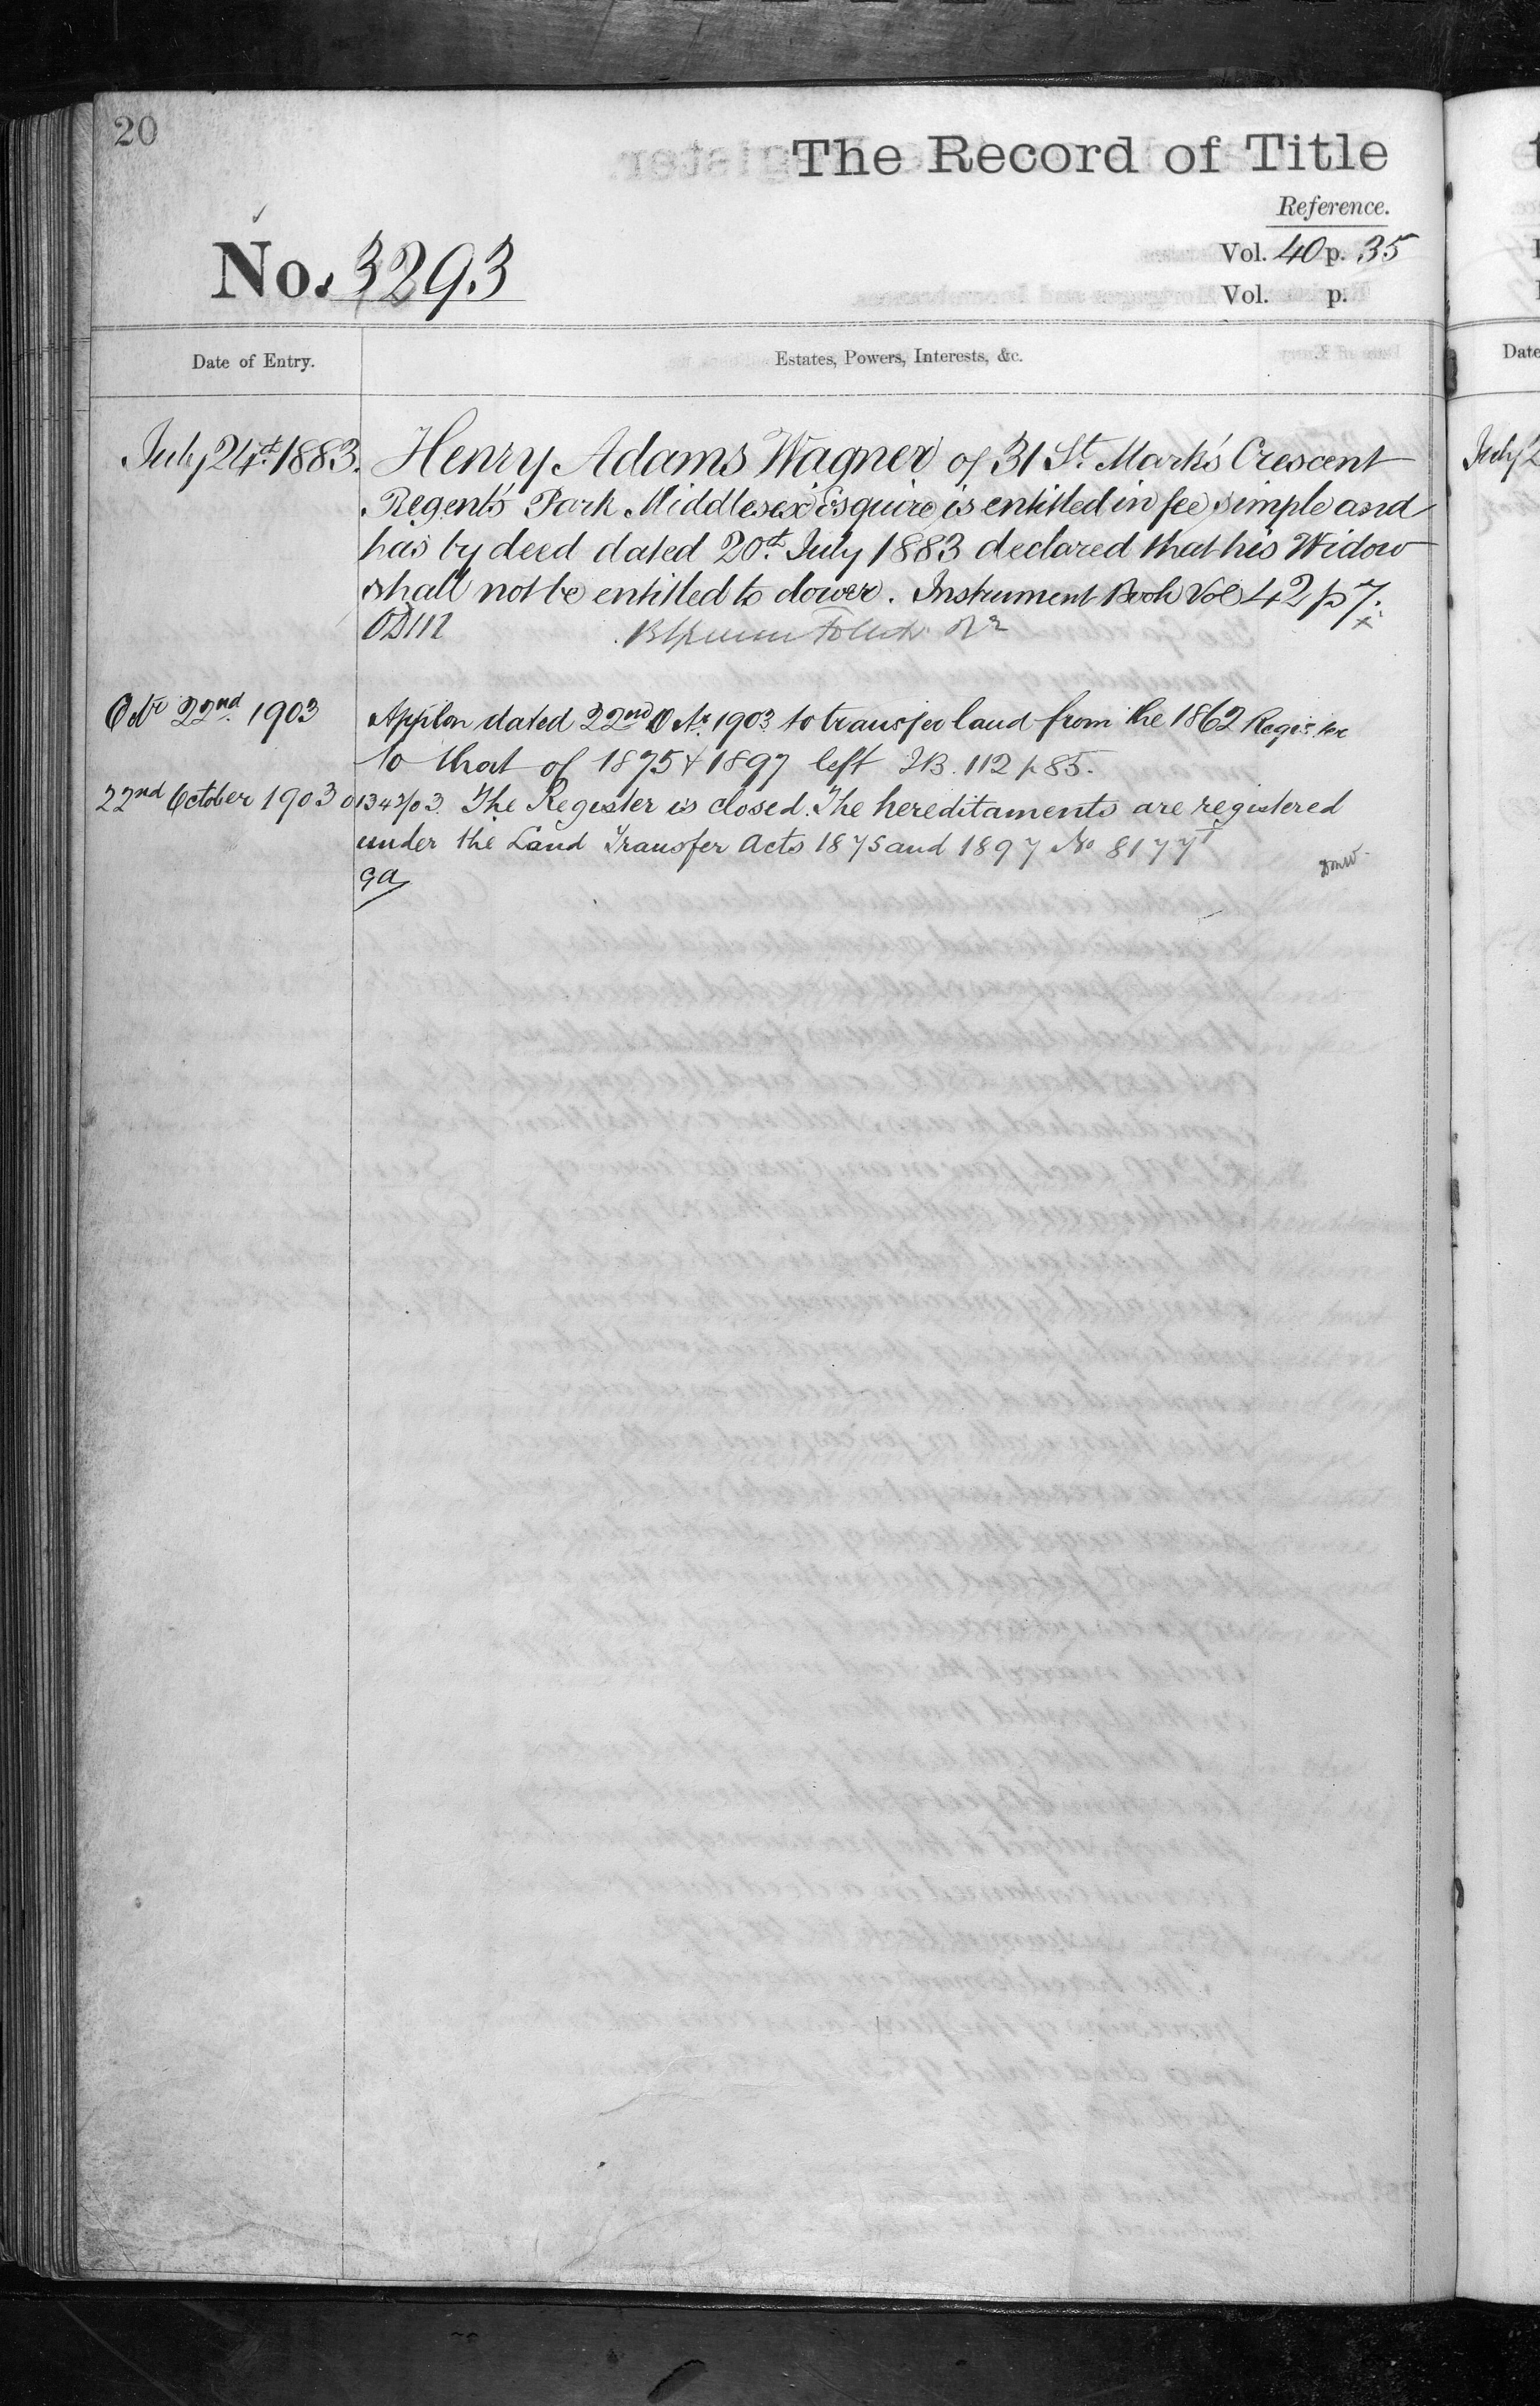 20
The Record of Title
Reference.
No. 3293
Vol. 40 p. 35
Vol. p.
Date of Entry.
Estates, Powers, Interests, &c.
July 24th 1883. Henry Adams Wagner of 31 St. Mark's Crescent
Regent's Park Middlesex Esquire is entitled in fee simple and
has by deed dated 20th July 1883 declared that his Widow
shall not be entitled to dower. Instrument Book Vol 42 p 7.
Octr 22nd 1903 Applon dated 22nd Octr. 1903 to transfer land from the 1862 Register
to that of 1875 & 1897 left IB. 112 p 85.
22nd October 1903 The Register is closed. The hereditaments are registered
under the Land Transfer Acts 1875 and 1897 No 8177
Date
July 2